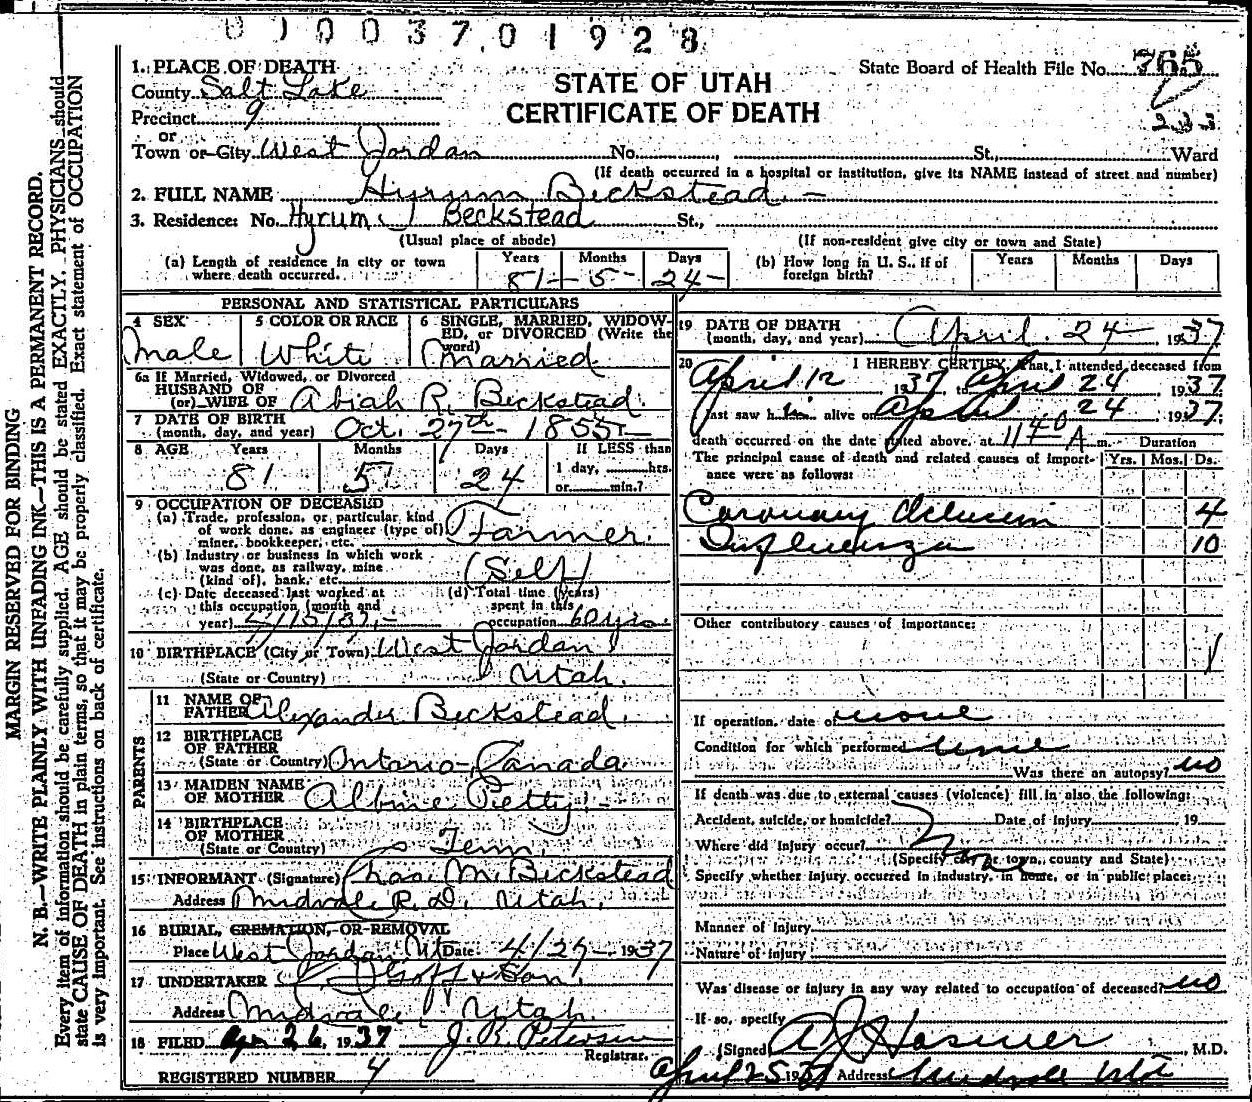 0 1 0 0 3 7 0 1 9 2 8
1. PLACE OF DEATH
County Salt Lake
Precinct 9
or
Town or City West Jordan No. , St., Ward
(If death occurred in a hospital or institution, give its NAME instead of street and number)
STATE OF UTAH
CERTIFICATE OF DEATH
State Board of Health File No. 765
233
2. FULL NAME Hyrum Beckstead
3. Residence: No. Hyrum J Beckstead St.,
(Usual place of abode)
(If non-resident give city or town and State)
(a) Length of residence in city or town where death occurred.
Years Months Days
81 - 5 - 24 -
(b) How long in U. S., if of foreign birth?
Years Months Days
PERSONAL AND STATISTICAL PARTICULARS
4 SEX
Male
5 COLOR OR RACE
White
6 SINGLE, MARRIED, WIDOW-
ED, or DIVORCED (Write the
word)
Married
6a If Married, Widowed, or Divorced
HUSBAND OF
(or) WIFE OF Abiah R. Beckstead
7 DATE OF BIRTH
(month, day, and year) Oct. 27th - 1855 -
8 AGE Years Months Days If LESS than
81 5 24 1 day, hrs.
or min.?
9 OCCUPATION OF DECEASED
(a) Trade, profession, or particular kind
of work done, as engineer (type of)
miner, bookkeeper, etc. Farmer.
(b) Industry or business in which work
was done, as railway, mine
(kind of), bank, etc. (Self)
(c) Date deceased last worked at
this occupation (month and
year)
(d) Total time (years)
spent in this
occupation 60 yrs.
10 BIRTHPLACE (City or Town) West Jordan
(State or Country) Utah.
PARENTS
11 NAME OF
FATHER Alexander Beckstead.
12 BIRTHPLACE
OF FATHER
(State or Country) Ontario - Canada
13 MAIDEN NAME
OF MOTHER
14 BIRTHPLACE
OF MOTHER
(State or Country) Tenn.
15 INFORMANT (Signature) Chas. M. Beckstead
Address Midvale R. D. Utah.
16 BURIAL, CREMATION, OR REMOVAL
Place West Jordan, Ut Date 4/27 - 1937
17 UNDERTAKER Goff & Son.
Address Midvale, Utah.
18 FILED Apr 26, 1937 J. B. Peterson
Registrar.
REGISTERED NUMBER 4
19 DATE OF DEATH
(month, day, and year) April. 24 - 1937
20 I HEREBY CERTIFY, That I attended deceased from
April 12 1937 to April 24 1937
I last saw him alive on April 24 1937;
death occurred on the date stated above, at 11 40 A m. Duration
The principal cause of death and related causes of import-
ance were as follows: Yrs. Mos. Ds.
Coronary Occlusion 4
Influenza 10
Other contributory causes of importance:
If operation, date of none
Condition for which performed none
Was there an autopsy? no
If death was due to external causes (violence) fill in also the following:
Accident, suicide, or homicide? Date of injury 19
Where did injury occur? None
(Specify city or town, county and State)
Specify whether injury occurred in industry, in home, or in public place:
Manner of injury
Nature of injury
Was disease or injury in any way related to occupation of deceased? no
If so, specify
(Signed) M.D.
April 25 1937 Address Midvale Utah
MARGIN RESERVED FOR BINDING
N. B.—WRITE PLAINLY WITH UNFADING INK—THIS IS A PERMANENT RECORD.
Every item of information should be carefully supplied. AGE should be stated EXACTLY. PHYSICIANS should
state CAUSE OF DEATH in plain terms, so that it may be properly classified. Exact statement of OCCUPATION
is very important. See instructions on back of certificate.